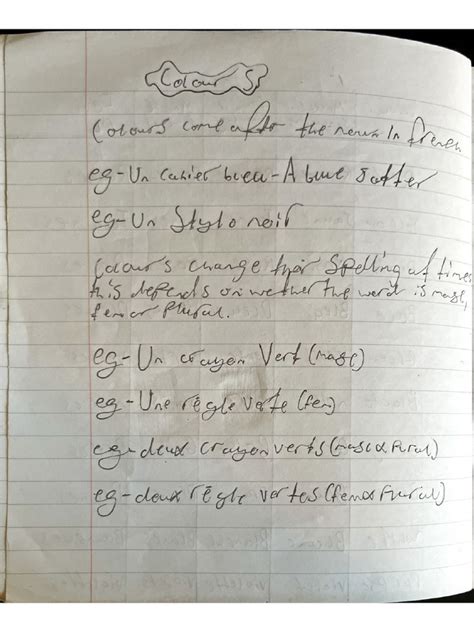 Colours
Colours come after the noun In french
eg-Un cahier bleu-A blue Jotter
eg-Un Stylo noir
Colours change their Spelling at times
this depends on wether the word is masc,
fem or Plural.
eg-Un crayon Vert (masc)
eg-Une règle verte (fem)
eg-deux crayon verts (masc & Plural)
eg-deux règle vertes (fem & Plural)